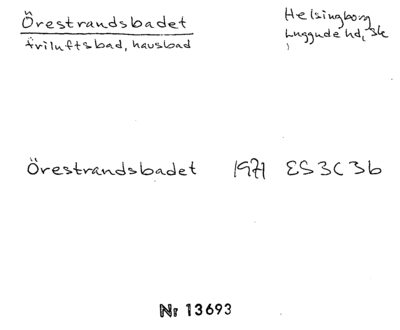 Örestrandsbadet
friluftsbad, hausbad
Helsingborg
Luggude hd, Sk
Örestrandsbadet 1971 ES3C3b
Nr 13693